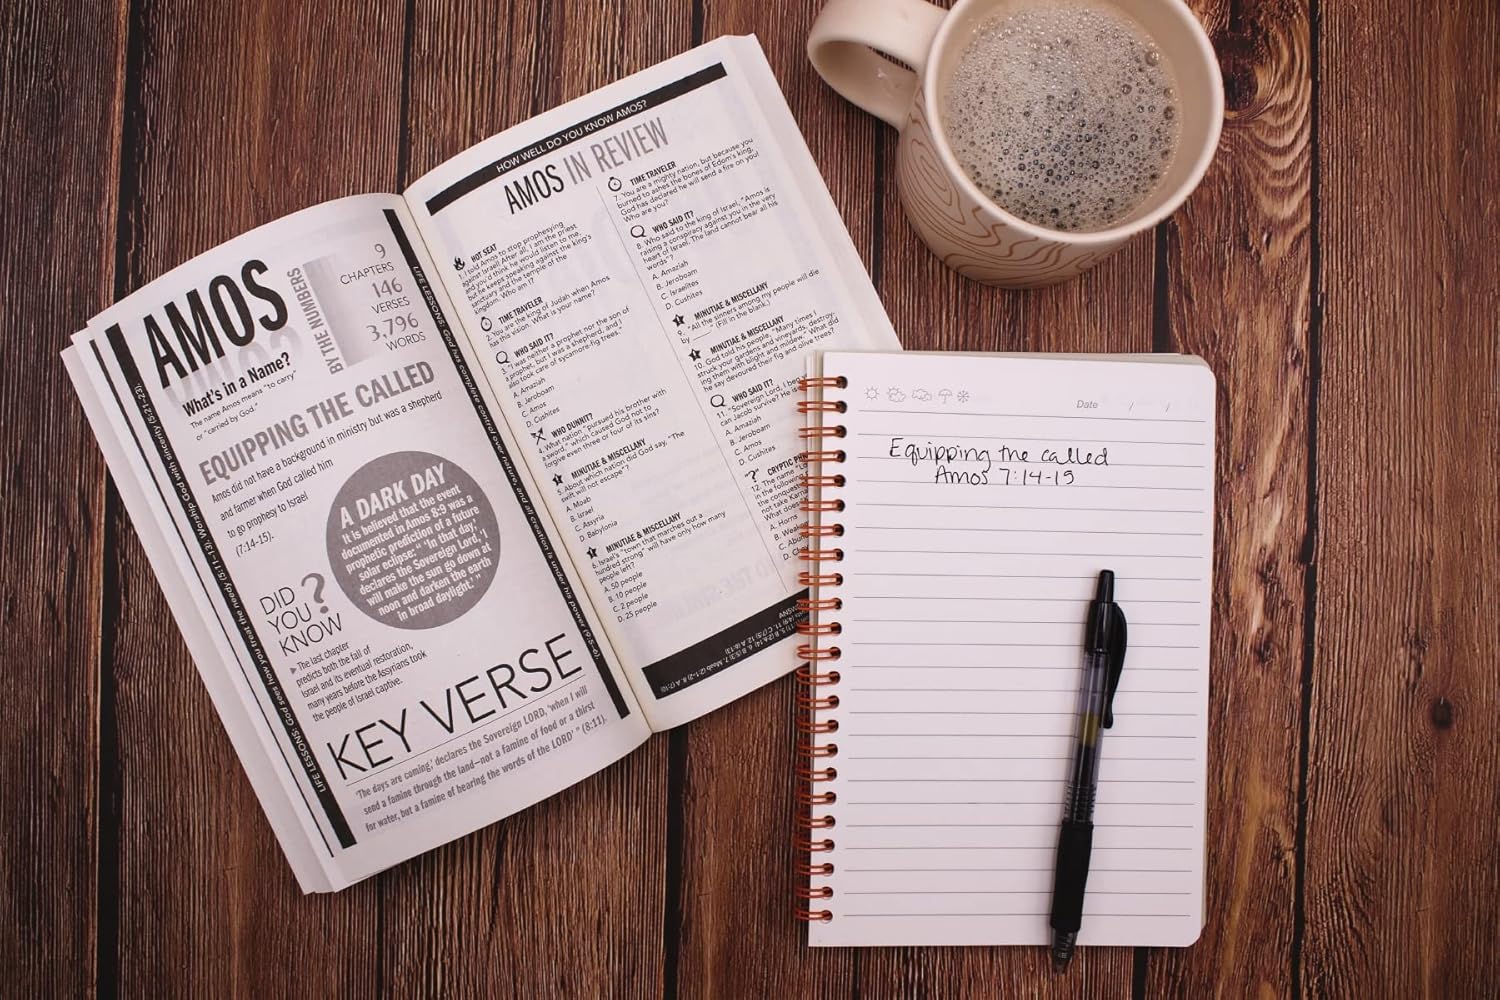 AMOS
BY THE NUMBERS
9
CHAPTERS
146
VERSES
3,796
WORDS
What's in a Name?
The name Amos means "to carry"
or "carried by God."
EQUIPPING THE CALLED
Amos did not have a background in ministry but was a shepherd
and farmer when God called him
to go prophesy to Israel
(7:14-15).
A DARK DAY
It is believed that the event
documented in Amos 8:9 was a
prophetic prediction of a future
solar eclipse: "'In that day,'
declares the Sovereign Lord, 'I
will make the sun go down at
noon and darken the earth
in broad daylight.'"
DID
YOU
KNOW
?
The last chapter
predicts both the fall of
Israel and its eventual restoration,
many years before the Assyrians took
the people of Israel captive.
KEY VERSE
"'The days are coming,' declares the Sovereign LORD, 'when I will
send a famine through the land—not a famine of food or a thirst
for water, but a famine of hearing the words of the LORD'" (8:11).
LIFE LESSONS: God sees how you treat the needy (5:11–13). Worship God with sincerity (5:21–23).
LIFE LESSONS: God has complete control over nature, and all creation is under his power (9:5–6).
HOW WELL DO YOU KNOW AMOS?
AMOS IN REVIEW
HOT SEAT
1. I told Amos to stop prophesying
against Israel. After all, I am the priest
and you'd think he would listen to me,
but he keeps speaking against the king's
sanctuary and the temple of the
kingdom. Who am I?
TIME TRAVELER
2. You are the king of Judah when Amos
has this vision. What is your name?
WHO SAID IT?
3. "I was neither a prophet nor the son of
a prophet, but I was a shepherd, and I
also took care of sycamore-fig trees."
A. Amaziah
B. Jeroboam
C. Amos
D. Cushites
WHO DUNNIT?
4. What nation "pursued his brother with
a sword," which caused God not to
forgive even three or four of its sins?
MINUTIAE & MISCELLANY
5. About which nation did God say, "The
swift will not escape"?
A. Moab
B. Israel
C. Assyria
D. Babylonia
MINUTIAE & MISCELLANY
6. Israel's "town that marches out a
hundred strong" will have only how many
people left?
A. 50 people
B. 10 people
C. 2 people
D. 25 people
TIME TRAVELER
7. You are a mighty nation, but because you
burned to ashes the bones of Edom's king,
God has declared he will send a fire on you!
Who are you?
WHO SAID IT?
8. Who said to the king of Israel, "Amos is
raising a conspiracy against you in the very
heart of Israel. The land cannot bear all his
words"?
A. Amaziah
B. Jeroboam
C. Israelites
D. Cushites
MINUTIAE & MISCELLANY
9. "All the sinners among my people will die
by ____." (Fill in the blank.)
MINUTIAE & MISCELLANY
10. God told his people, "Many times I
struck your gardens and vineyards, destroy-
ing them with blight and mildew." What did
he say devoured their fig and olive trees?
WHO SAID IT?
11. "Sovereign Lord, I
can Jacob survive? He is
A. Amaziah
B. Jeroboam
C. Amos
D. Cushites
CRYPTIC
12. The name
in the following
the conques
not take Karna
What does
A. Horns
B.
C.
D.
Date / /
Equipping the called
Amos 7:14-15